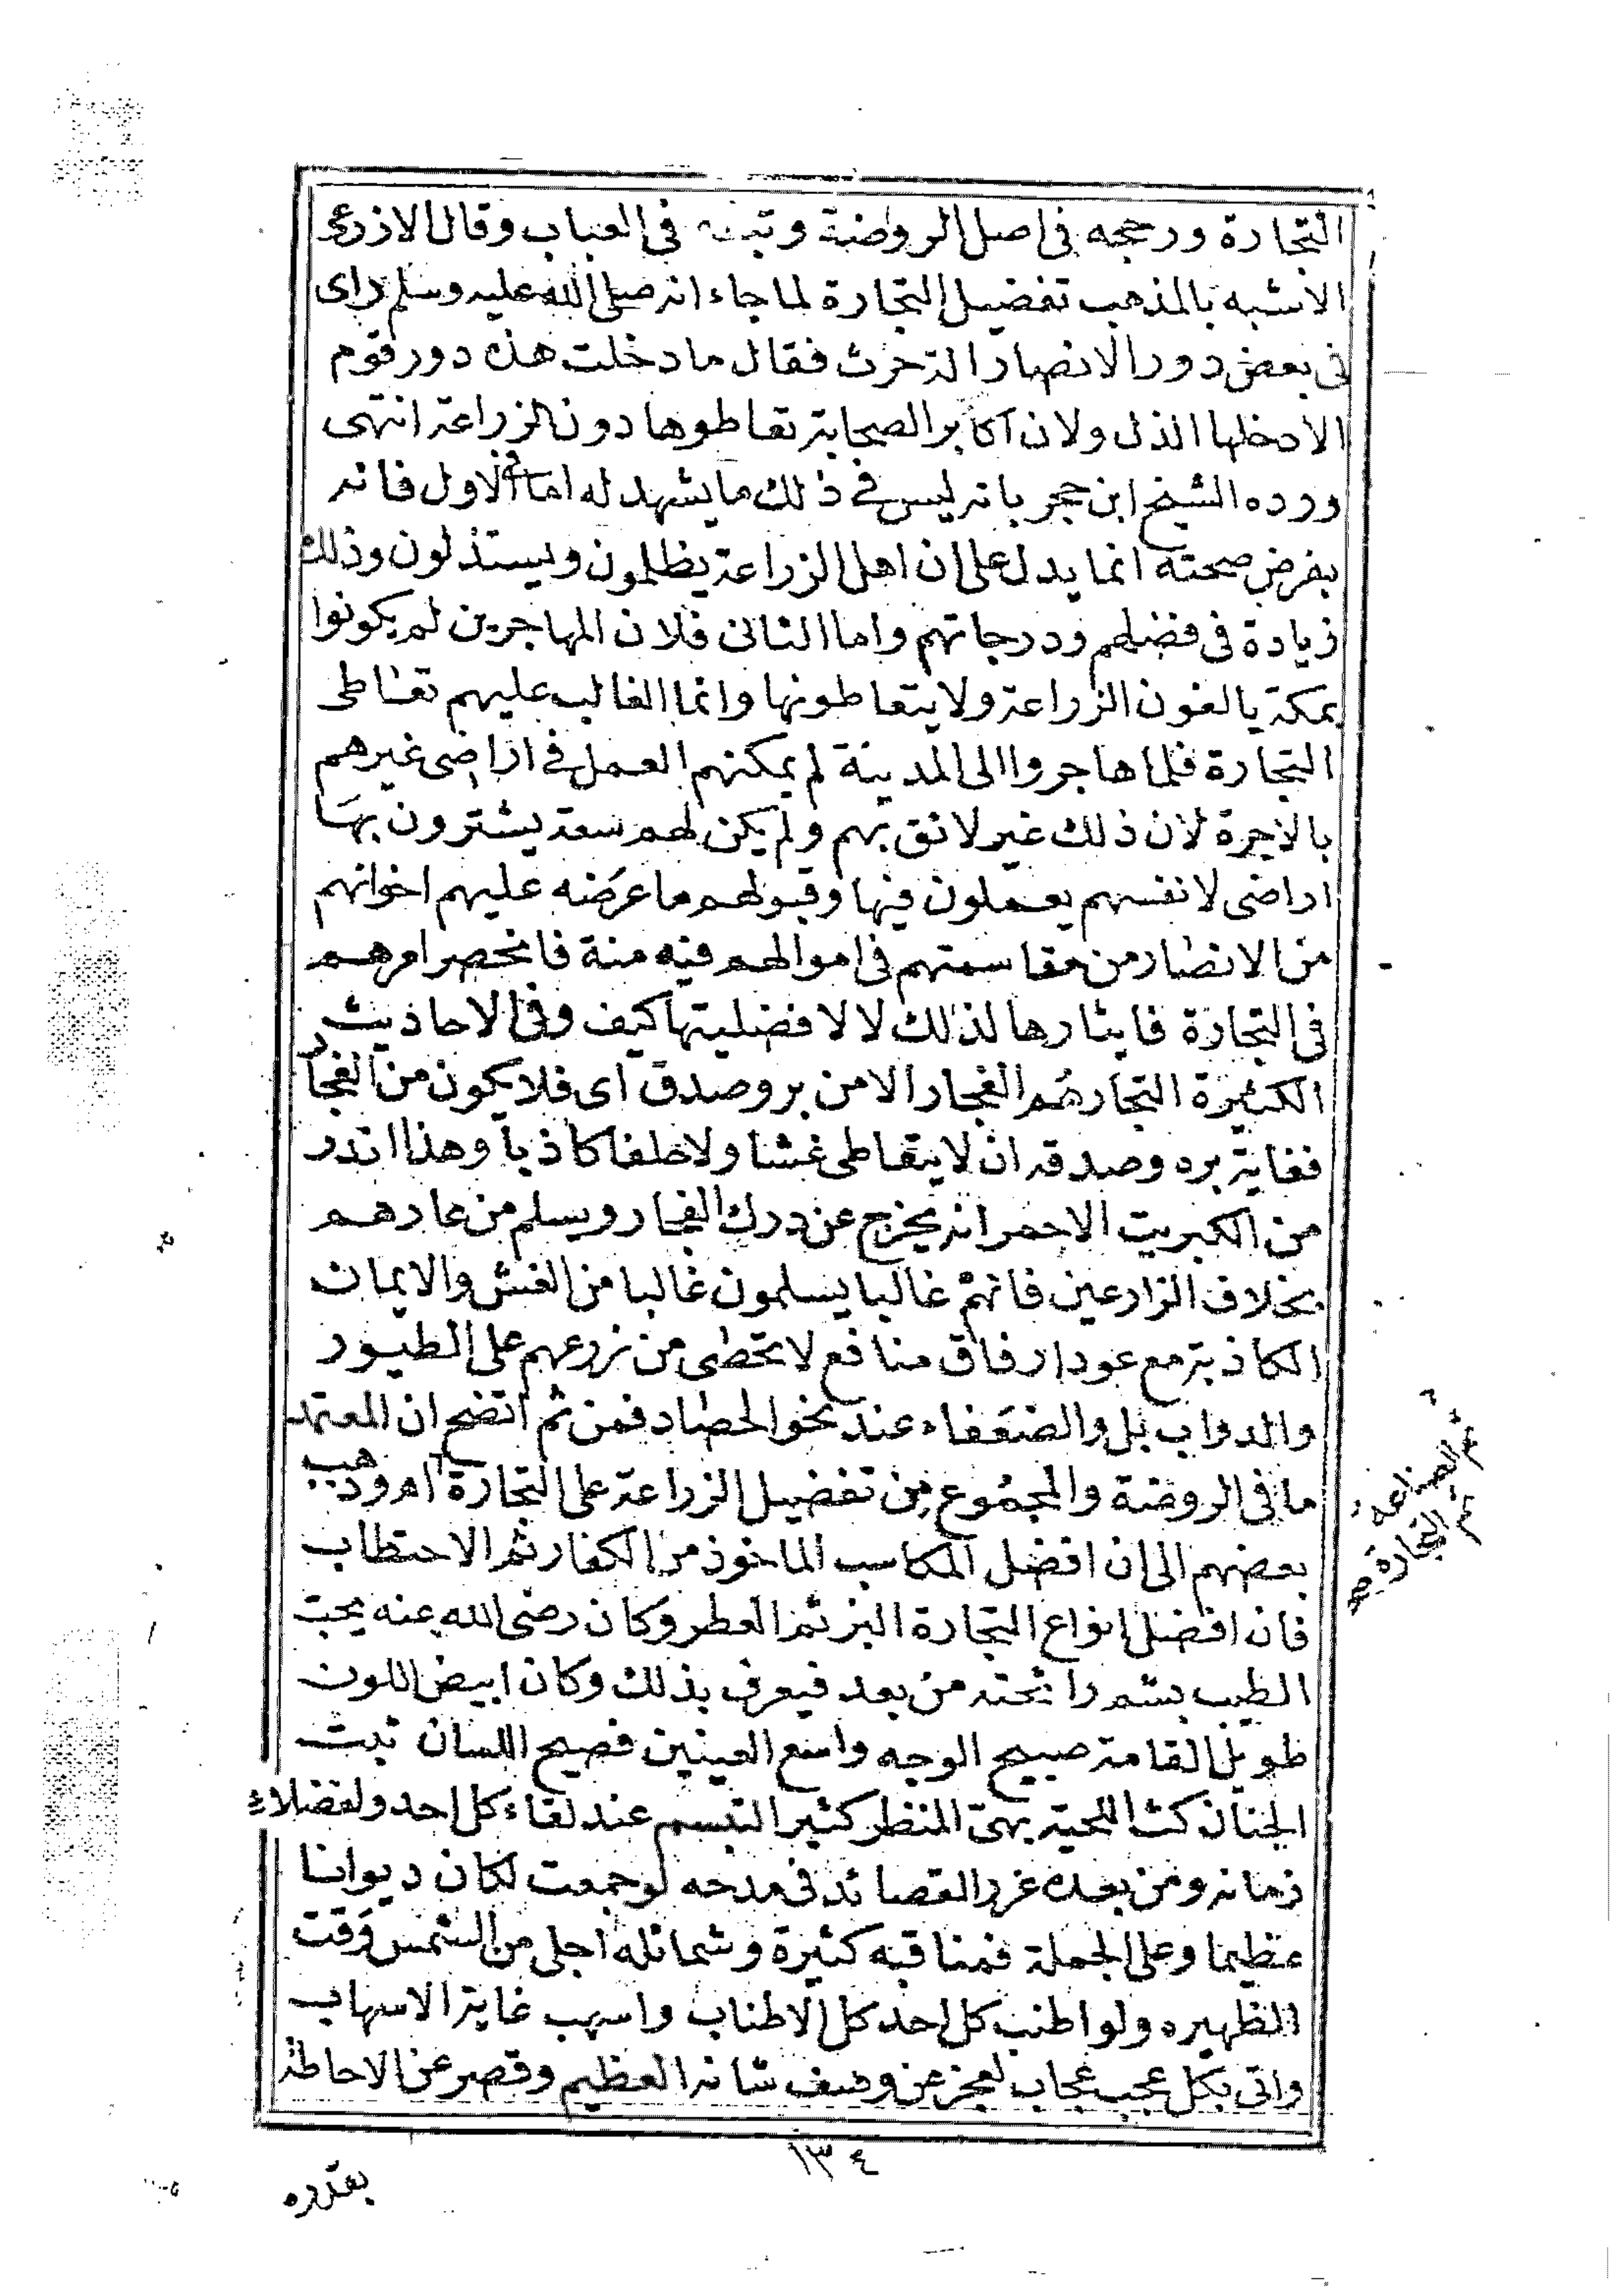 التجارة ورجحه فى اصل الروضة وتبعه فى العباب وقال الاذرعى
الاشبه بالمذهب تفضيل التجارة لما جاء انه صلى الله عليه وسلم راى
فى بعض دور الانصار الة حرث فقال ما دخلت هذه دور قوم
الا دخلها الذل ولان اكابر الصحابة تعاطوها دون الزراعة انتهى
ورده الشيخ ابن حجر بانه ليس فى ذلك ما يشهد له اما فى الاول فانه
بفرض صحته انما يدل على ان اهل الزراعة يظلمون ويستذلون وذلك
زيادة فى فضلهم ودرجاتهم واما الثانى فلان المهاجرين لم يكونوا
بمكة يالفون الزراعة ولا يتعاطونها وانما الغالب عليهم تعاطى
التجارة فلما هاجروا الى المدينة لم يمكنهم العمل فى اراضى غيرهم
بالاجرة لان ذلك غير لائق بهم ولم يكن لهم سعة يشترون بها
اراضى لانفسهم يعملون فيها وقبولهم ما عرضه عليهم اخوانهم
من الانصار من مقاسمتهم فى اموالهم فيه منة فانحصر امرهم
فى التجارة فايثارها لذلك لا لافضليتها كيف وفى الاحاديث
الكثيرة التجار هم الفجار الا من بر وصدق اى فلا يكون من الفجار
فغاية بره وصدقه ان لا يتعاطى غشا ولا حلفا كاذبا وهذا اندر
من الكبريت الاحمر انه يخرج عن درك الفجار ويسلم من عارهم
بخلاف الزارعين فانهم غالبا يسلمون غالبا من الغش والايمان
الكاذبة مع عود ارفاق منافع لا تحصى من زرعهم على الطيور
والدواب بل والضعفاء عند نحو الحصاد فمن ثم اتضح ان المعتمد
ما فى الروضة والمجموع من تفضيل الزراعة على التجارة اه وذهب
بعضهم الى ان افضل المكاسب الماخوذ من الكفار ثم الاحتطاب
ثم الصناعة
ثم التجارة صح
فان افضل انواع التجارة البز ثم العطر وكان رضى الله عنه يحب
الطيب يشم رائحته من بعد فيعرف بذلك وكان ابيض اللون
طويل القامة صبيح الوجه واسع العينين فصيح اللسان ثبت
الجنان كث اللحية بهى المنظر كثير التبسم عند لقاء كل احد ولفضلاء
زمانه ومن بعده غرر القصائد فى مدحه لو جمعت لكان ديوانا
عظيما وعلى الجملة فمناقبه كثيرة وشمائله اجلى من الشمس وقت
الظهيره ولو اطنب كل احد كل الاطناب واسهب غاية الاسهاب
واتى بكل عجب عجاب لعجز عن وصف شانه العظيم وقصر عن الاحاطة
١٣٤
بقدره